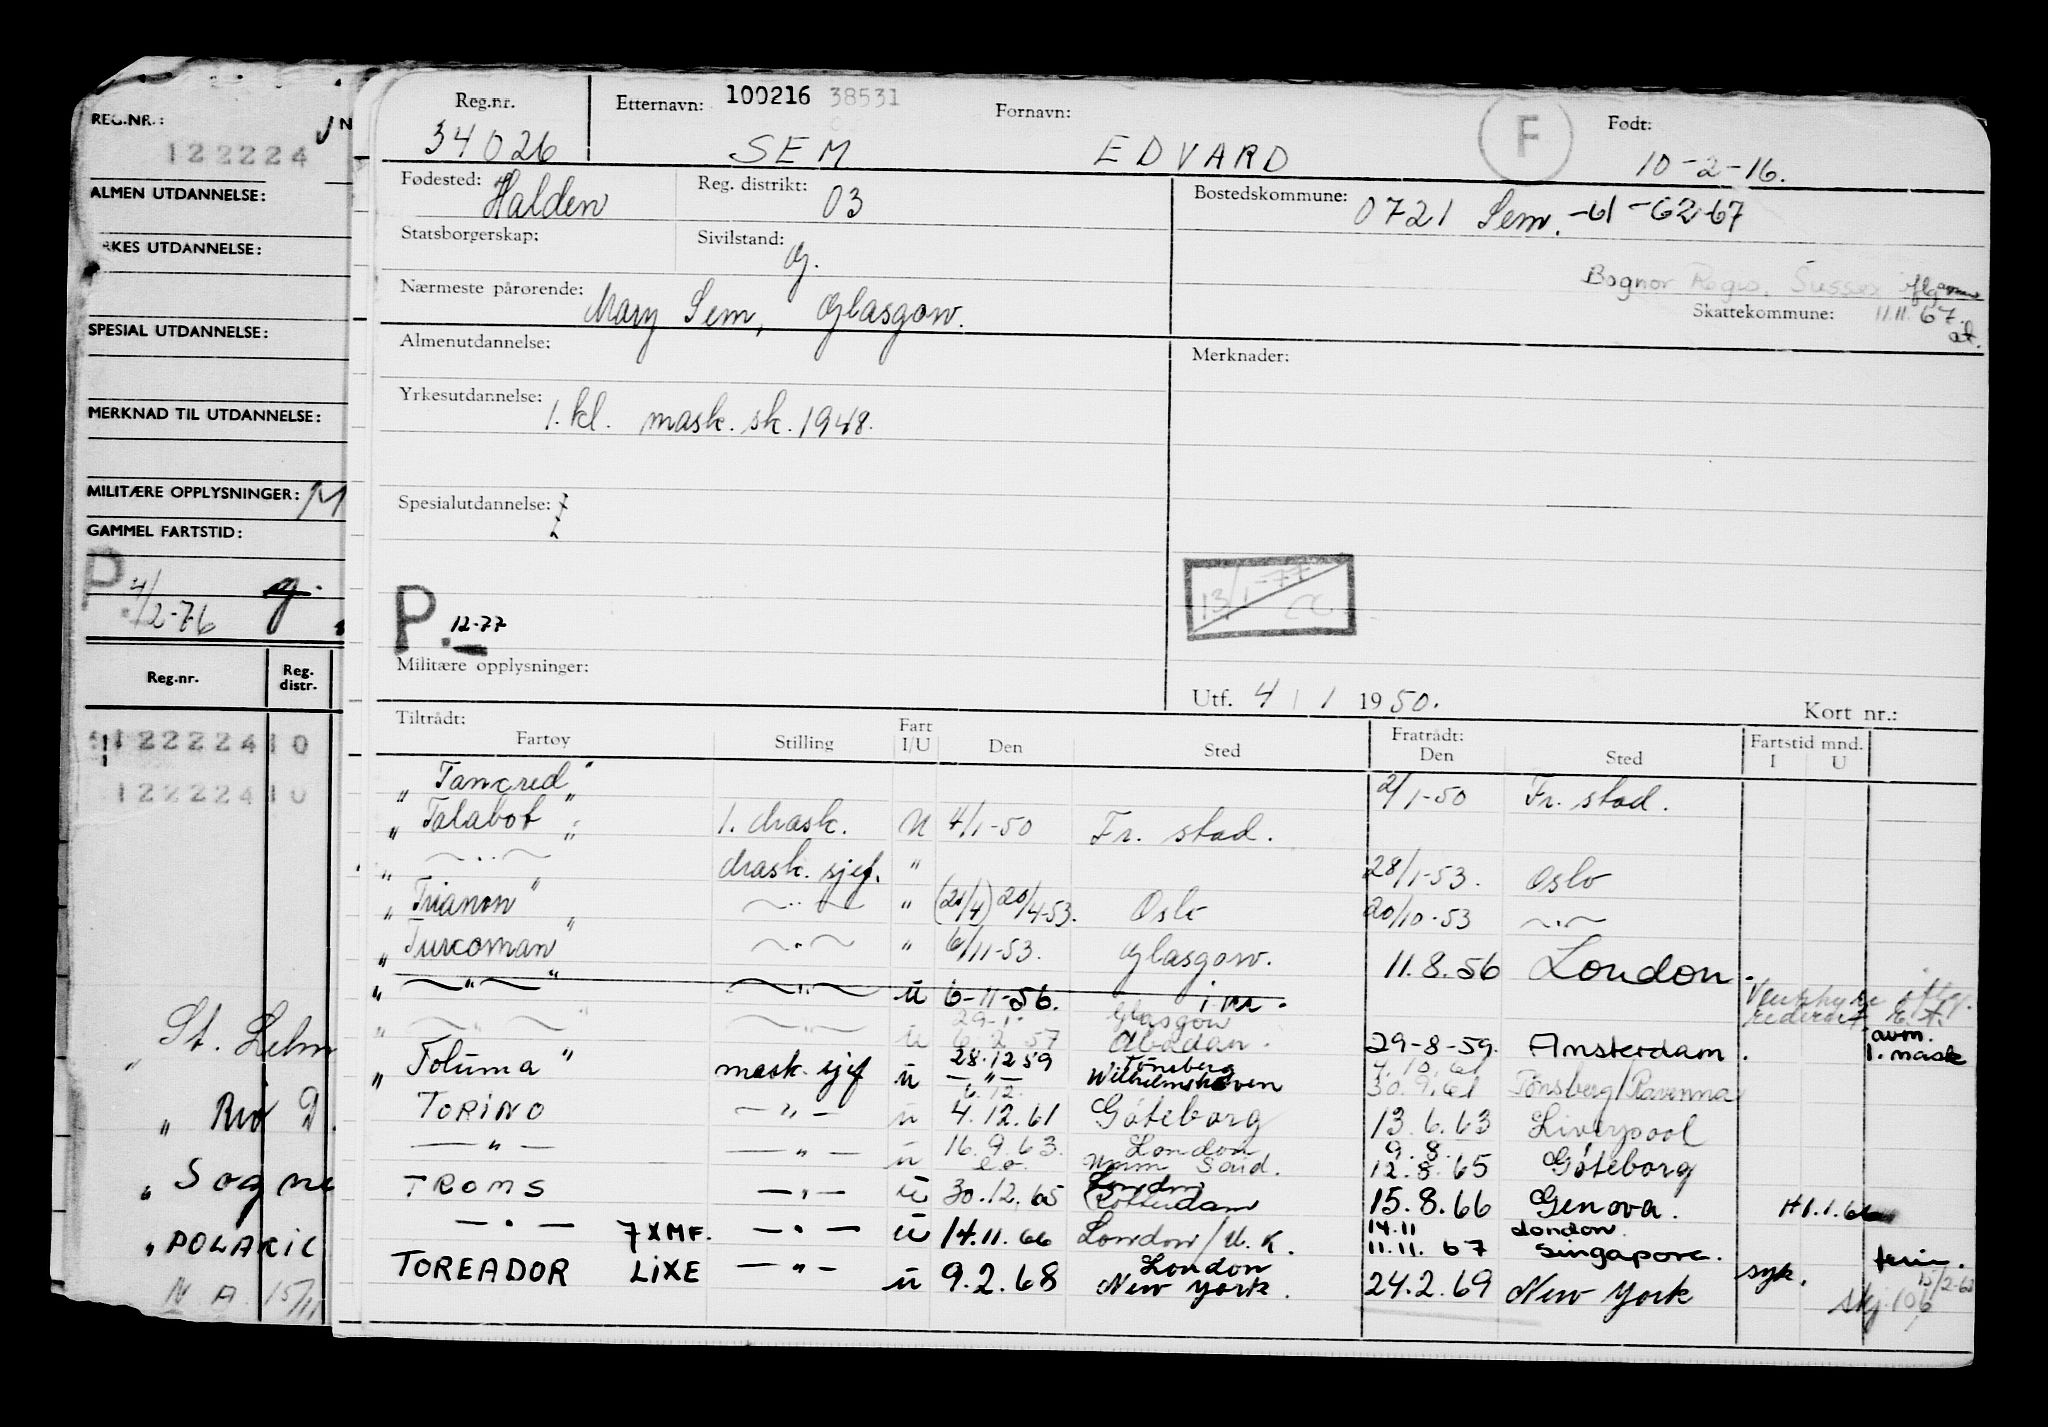 REG.NR.:
122224
ALMEN UTDANNELSE:
RKES UTDANNELSE:
SPESIAL UTDANNELSE:
MERKNAD TIL UTDANNELSE:
MILITÆRE OPPLYSNINGER: M
GAMMEL FARTSTID:
P. 4/2-76 g.
Reg.nr. Reg. distr.
122224 10
122224 10
" St. Helm
" Rio D
" Sogne
" POLARIC
N A. 15/11
Reg.nr. Etternavn: 100216 38531 Fornavn: F Født:
34026 SEM EDVARD 10-2-16.
Fødested: Halden Reg. distrikt: 03 Bostedskommune: 0721 Sem. -61-62-67
Statsborgerskap: Sivilstand: g.
Bognor Regis, Sussex iflg
Nærmeste pårørende: Mary Sem, Glasgow. Skattekommune: 11.11.67.
Almenutdannelse: Merknader:
Yrkesutdannelse: 1. kl. mask. sk. 1948.
Spesialutdannelse:
13/1-77
P. 12-77
Militære opplysninger:
Utf. 4 / 1 1950. Kort nr.:
Tiltrådt: Fartøy Stilling Fart I/U Den Sted Fratrådt: Den Sted Fartstid mnd. I U
"Tancred" 2/1-50 Fr. stad.
"Talabot" 1. mask. U 4/1-50 Fr. stad.
" — " — mask. sjef. " 28/1-53. Oslo
"Trianon" — " — " (20/4) 20/4-53. Oslo 20/10-53 — " —
"Turcoman" — " — " 6/11-53. Glasgow. 11.8.56 London.
" — " — " — " — u 6-11-56. i nr.
29-1- Glasgow
" — " — " u 6.2.57 Abadan. 29-8-59. Amsterdam. avm. 1. mask
"Toluma" mask. sjef u 28.12.59 Tönsberg Wilhelmshaven 7.10.61 30.9.61 Tønsberg/Ravenna
6.12.
TORINO — " — u 4.12.61 Göteborg 13.6.63 Liverpool
— " — — " — u 16.9.63. London 9.8. 12.8.65 Göteborg
TROMS — " — u 30.12.65 London Rotterdam 15.8.66 Genova. H1.1.66
— " — 7XMF. — " — u 14.11.66 London/U.K. 14.11 London
11.11.67 Singapore. ferie.
TOREADOR LIXE — " — u 9.2.68 London New York. 24.2.69 New York syk. skj. 106 15/2-68